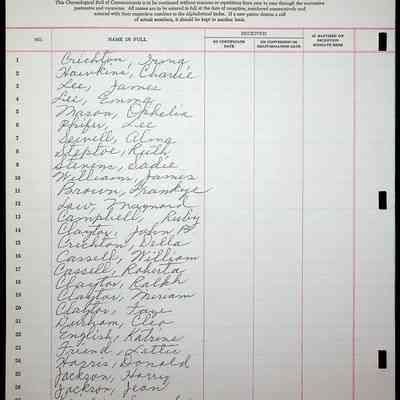 This Chronological Roll of Communicants is to be continued without reserves or repetitions from year to year through the successive
pastorates and vacancies. All names are to be entered in full at the date of reception, numbered consecutively and
entered with their respective numbers in the Alphabetical Index. If a new pastor desires a roll
of actual members, it should be kept in another book.
RECEIVED
NO. NAME IN FULL BY CERTIFICATE DATE ON CONFESSION OR REAFFIRMATION DATE IF BAPTIZED ON RECEPTION INDICATE HERE
1 Crichton, Irving
2 Hawkins, Charlie
3 Lee, James
4 Lee, Emma
5 Mason, Ophelia
6 Phifer, Lee
7 Sewell, Alma
8 Steptoe, Ruth
9 Stevens, Sadie
10 Williams, James
11 Brown, Frankye
12 Law, Maynard
13 Campbell, Ruby
14 Claytor, John B
15 Crichton, Della
16 Cassell, William
17 Cassell, Roberta
18 Claytor, Ralph
19 Claytor, Miriam
20 Claytor, Faye
21 Durham, Cleo
22 English, Katrine
23 Friend, Lettie
24 Harris, Donald
25 Jackson, Harry
26 Jackson, Jean